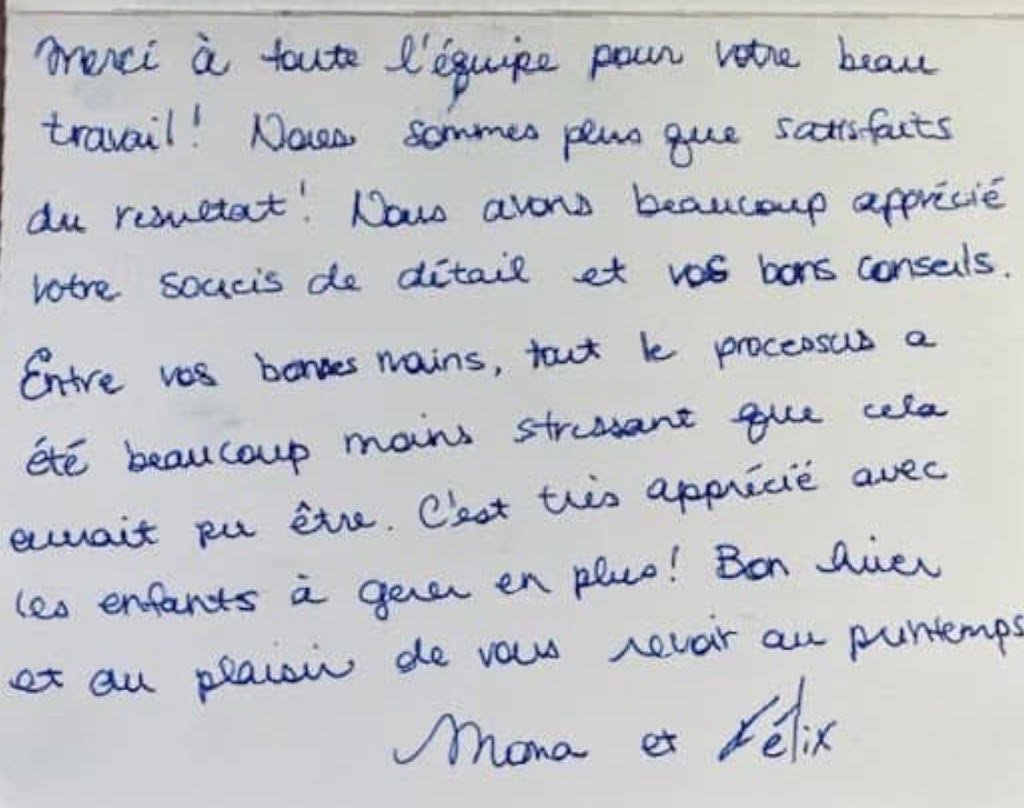 Merci à toute l'équipe pour votre beau
travail! Nous sommes plus que satisfaits
du resultat! Nous avons beaucoup apprécié
votre soucis de détail et vos bons conseils.
Entre vos bonnes mains, tout le processus a
été beaucoup moins stressant que cela
aurait pu être. C'est très apprécié avec
les enfants à gerer en plus! Bon hiver
et au plaisir de vous revoir au printemps
Mona et Félix